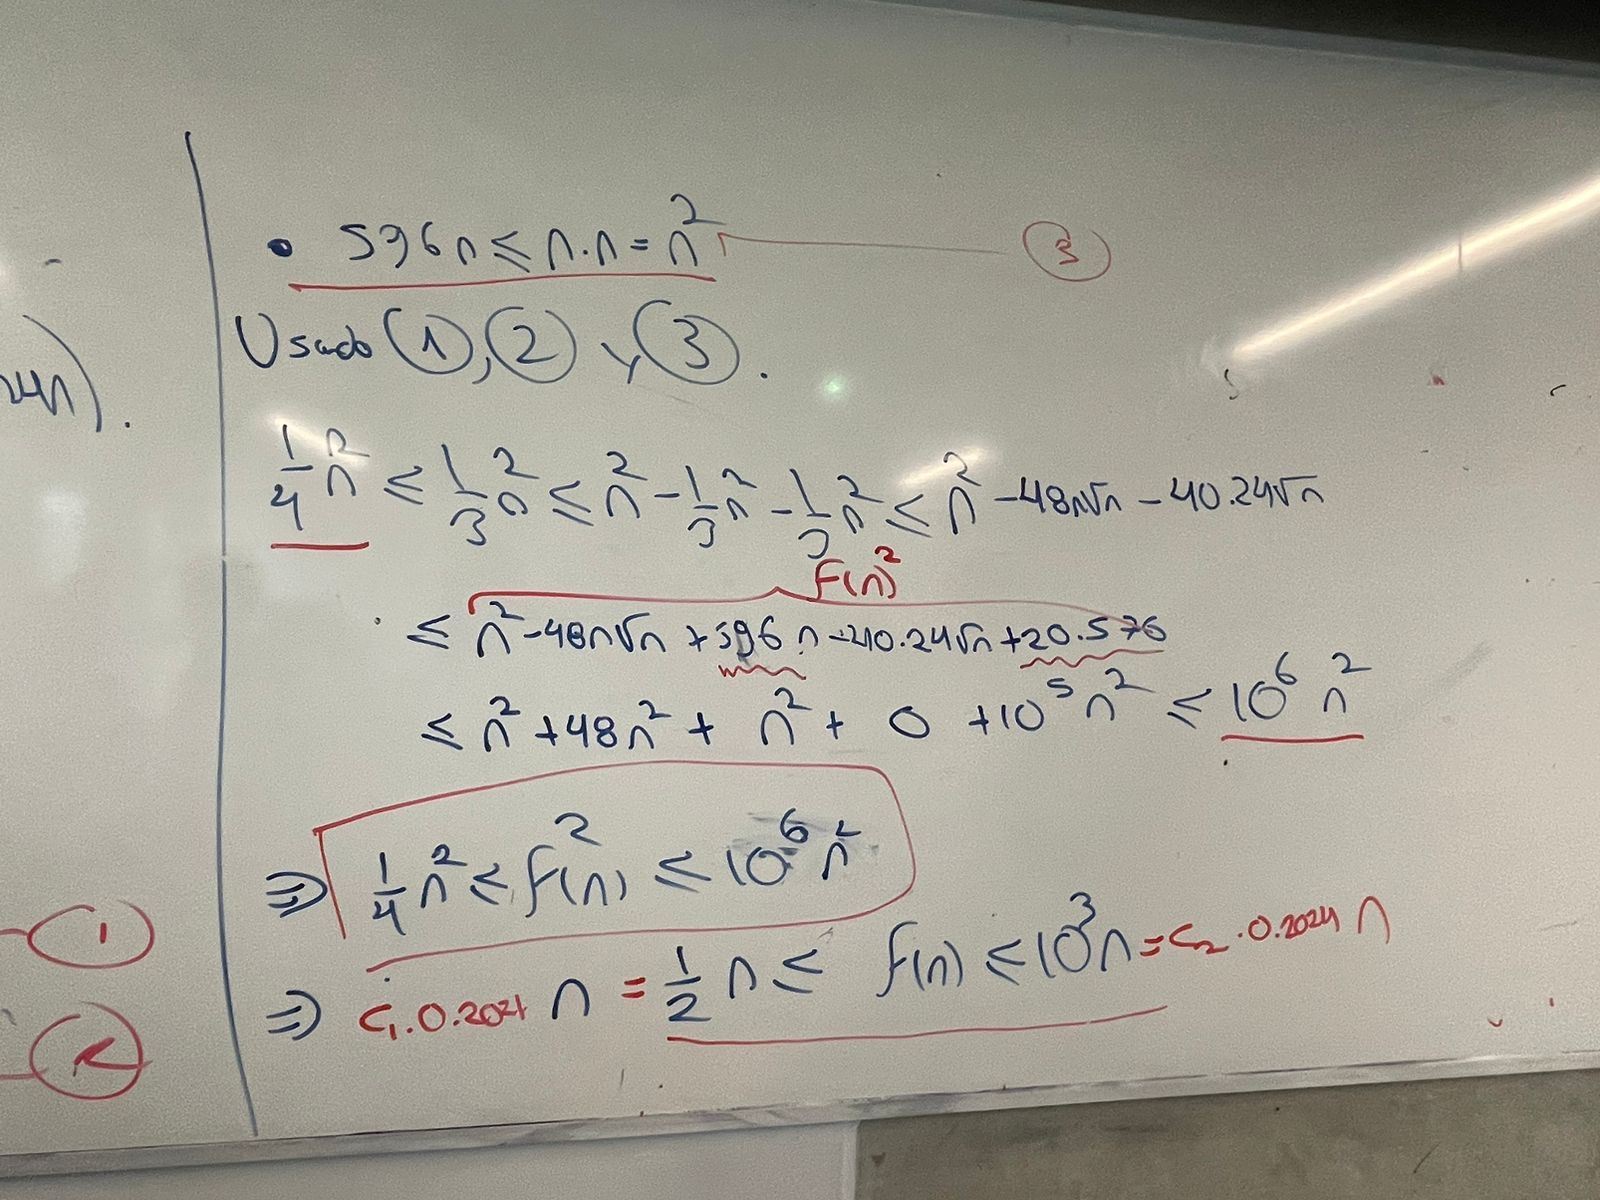 • 596n ≤ n.n = n² ③
Usado ①, ② y ③.
24n).
1/4 n² ≤ 1/3 n² ≤ n² - 1/3 n² - 1/3 n² ≤ n² - 48n√n - 40.24√n
f(n)²
≤ n² - 48n√n + 596n - 40.24√n + 20.576
≤ n² + 48n² + n² + 0 + 10⁵n² ≤ 10⁶n²
⇒ 1/4 n² ≤ f(n)² ≤ 10⁶n²
①
⇒ c₁.0.2024 n = 1/2 n ≤ f(n) ≤ 10³n = c₂.0.2024 n
②